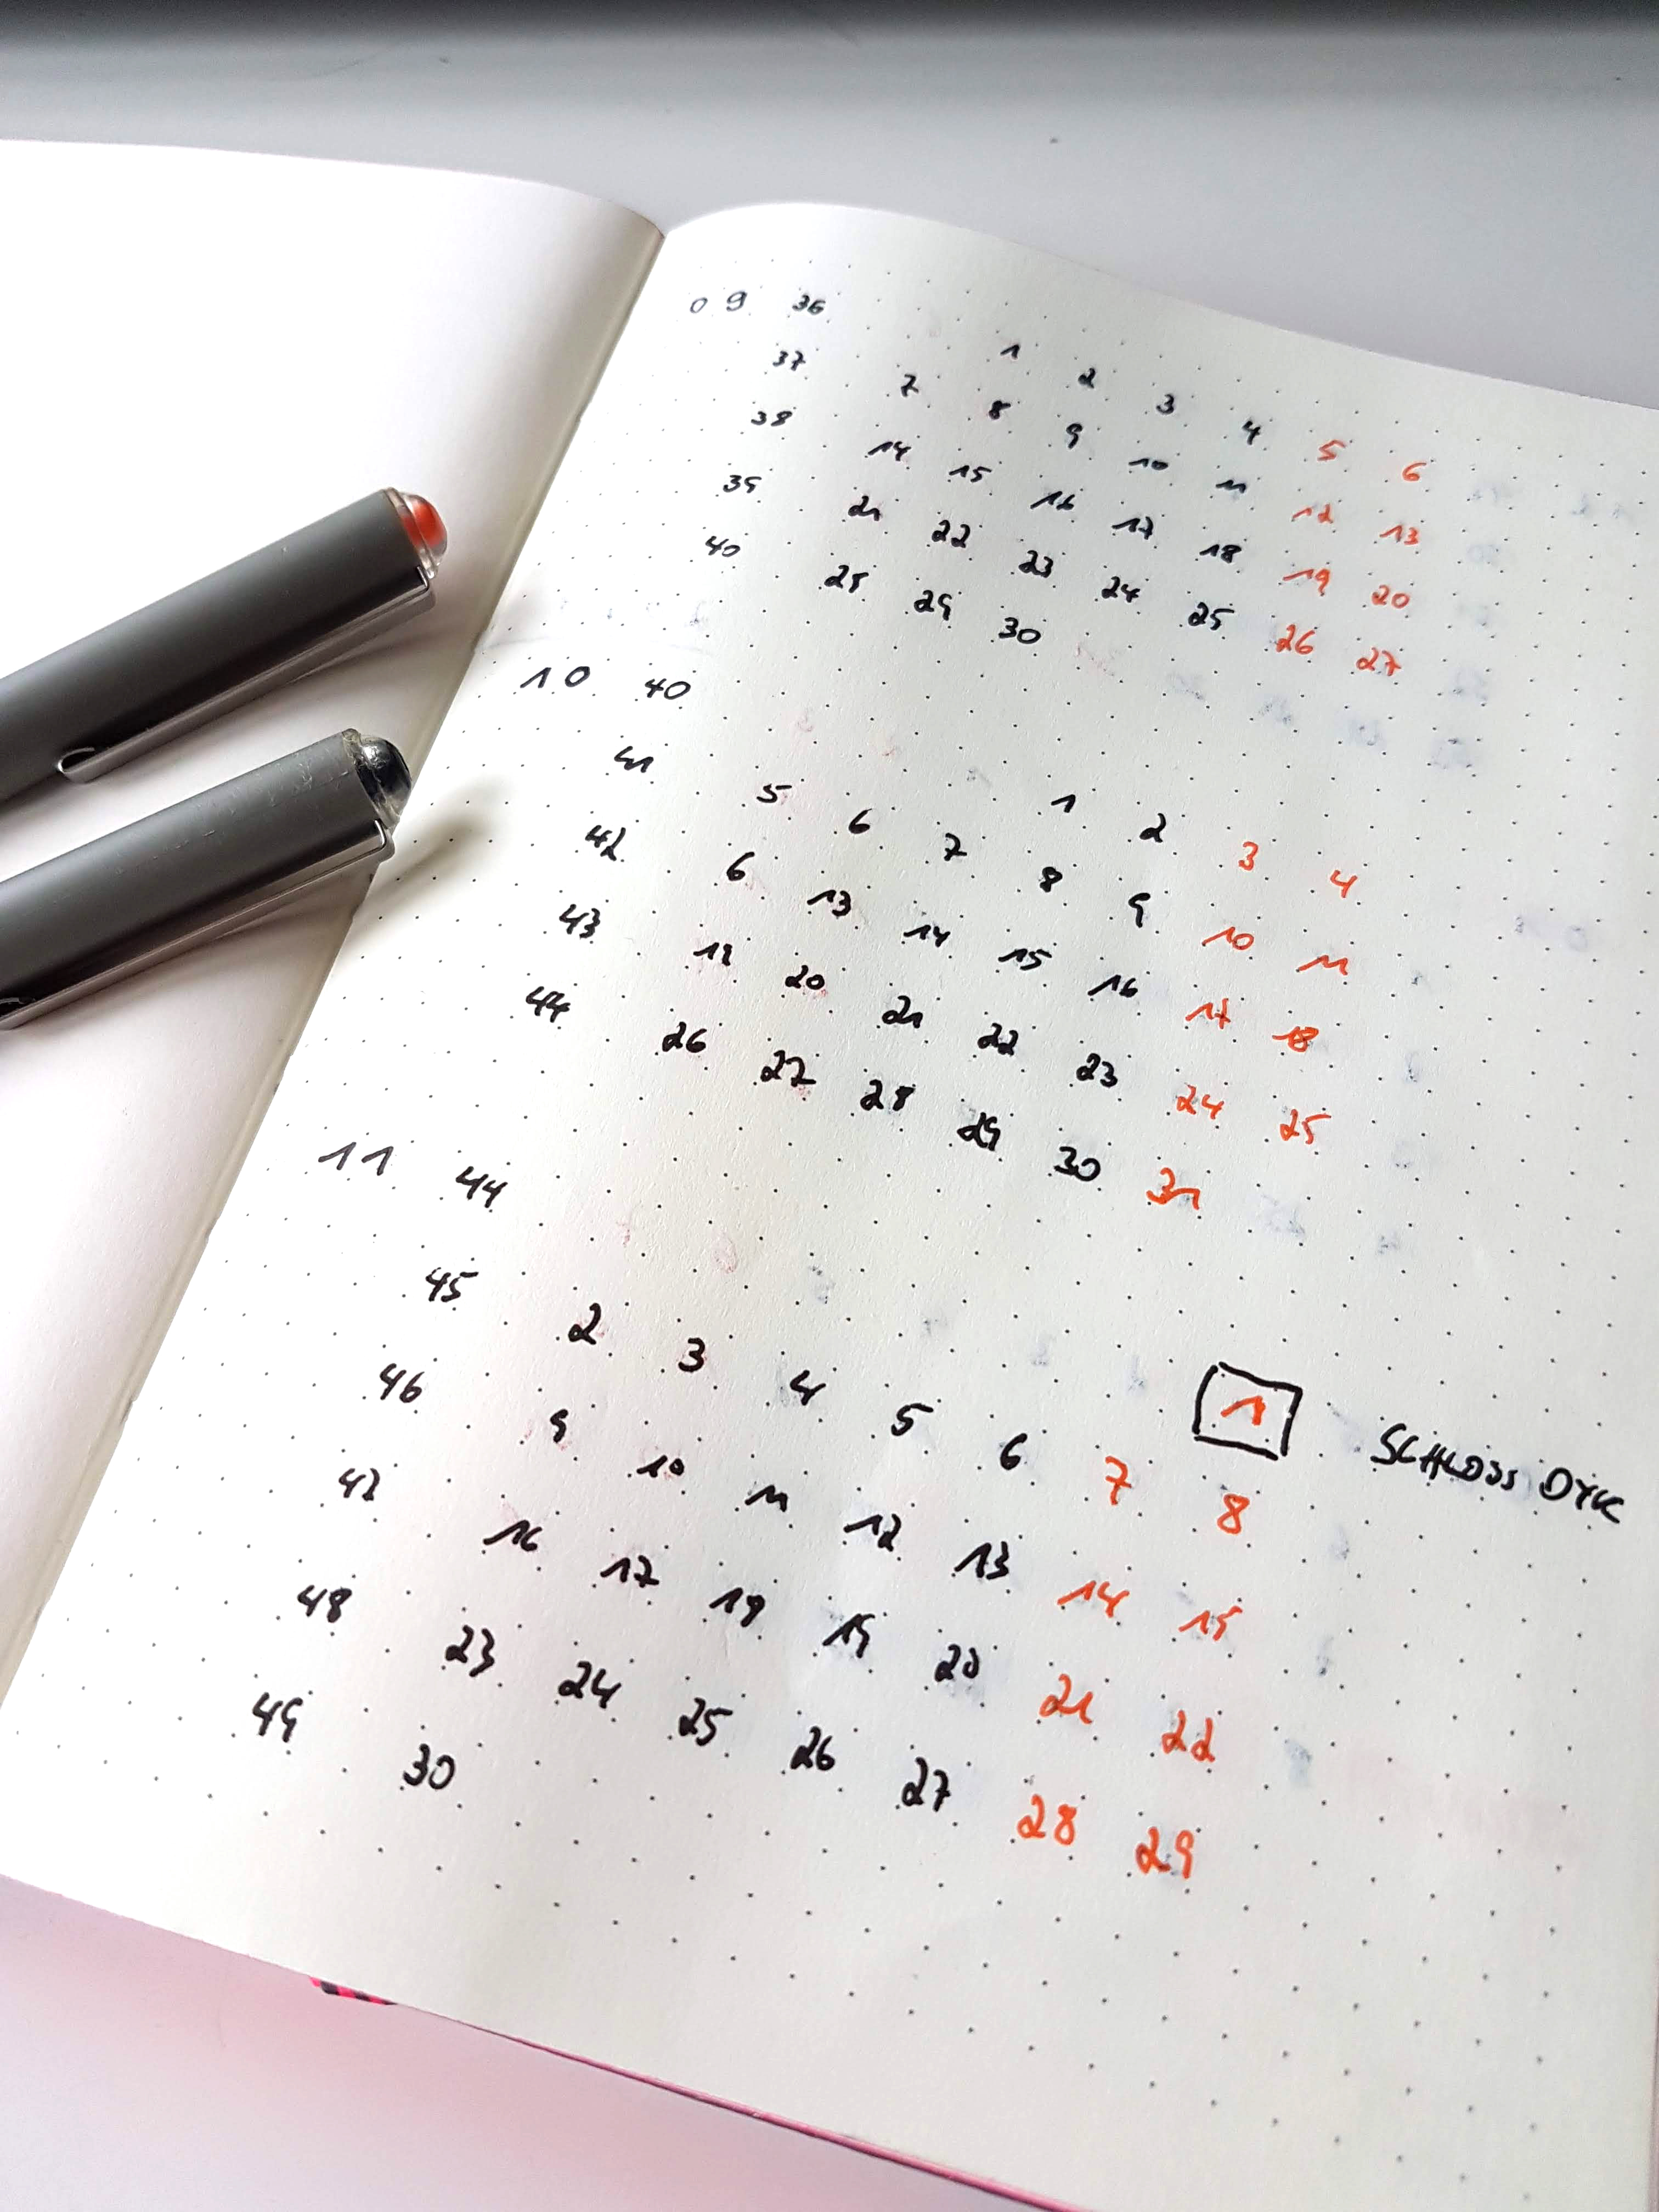 09 36 1 2 3 4 5 6
37 7 8 9 10 11 12 13
38 14 15 16 17 18 19 20
39 21 22 23 24 25 26 27
40 28 29 30
10 40 1 2 3 4
41 5 6 7 8 9 10 11
42 6 13 14 15 16 17 18
43 19 20 21 22 23 24 25
44 26 27 28 29 30 31
11 44 1 SCHLOSS DYCK
45 2 3 4 5 6 7 8
46 9 10 11 12 13 14 15
47 16 17 19 19 20 21 22
48 23 24 25 26 27 28 29
49 30